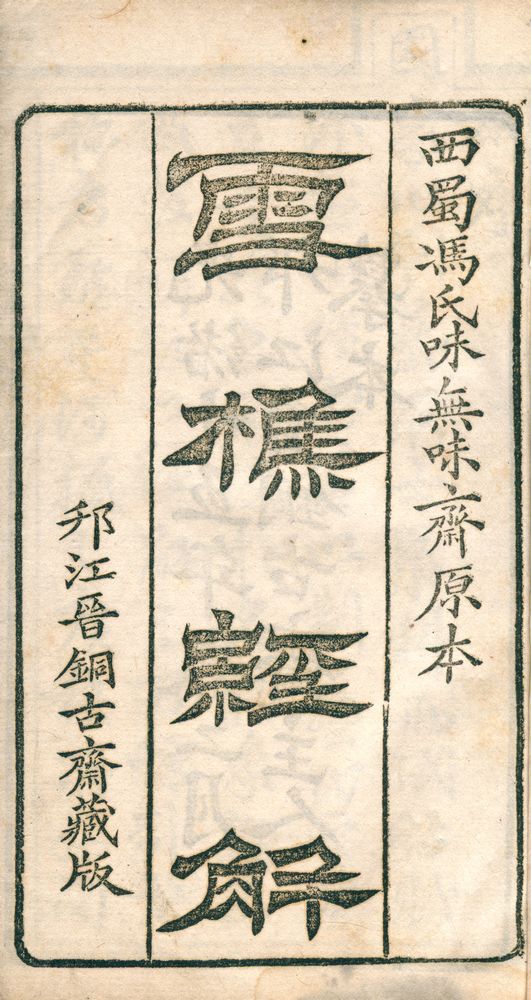 西蜀馮氏味無味齋原本
雪樵經解
邗江晉銅古齋藏版